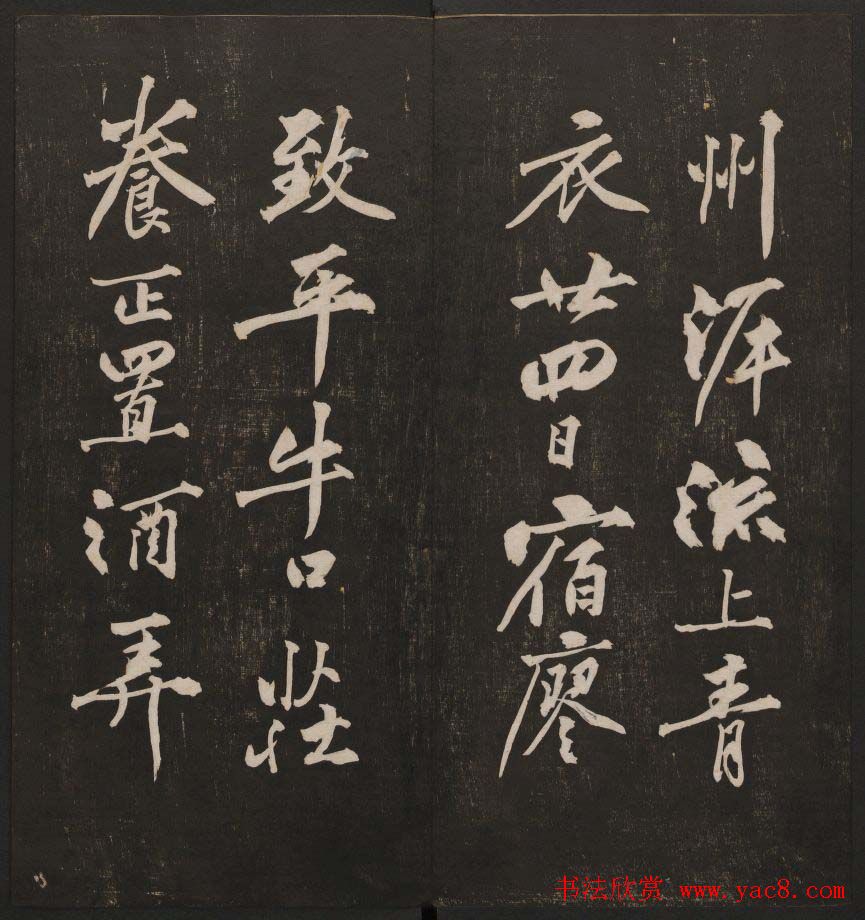 州泝流上青
衣廿四日宿廖
致平牛口莊
養正置酒弄
书法欣赏 www.yac8.com